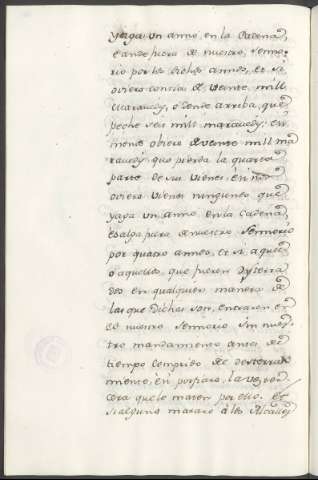 yaga un anno, en la Cadena,
e ande fuera de nuestro, Senno-
rio por los dichos annos, et si
oviere contia de veinte mill
Maravedis, o dende arriba, que
peche seis mill maravedis, e si
monos obiere de veinte mill ma
ravedis, que pierda la quarta
parte de sus vienes, e si non
oviere vienes ningunos que
yaga un anno en la Cadena,
e salga fuera de nuestro Sennorio
por quatro annos, Et si aquel
o aquellos, que fueren desterra
dos en qualquier manera de
las que dichas son, entraren en
el nuestro Sennorio sin nues-
tro mandamiento antes de
tiempo complido de desterra
miento, en
que lo maten por ello. Et
si alguno matare a los Alcalles